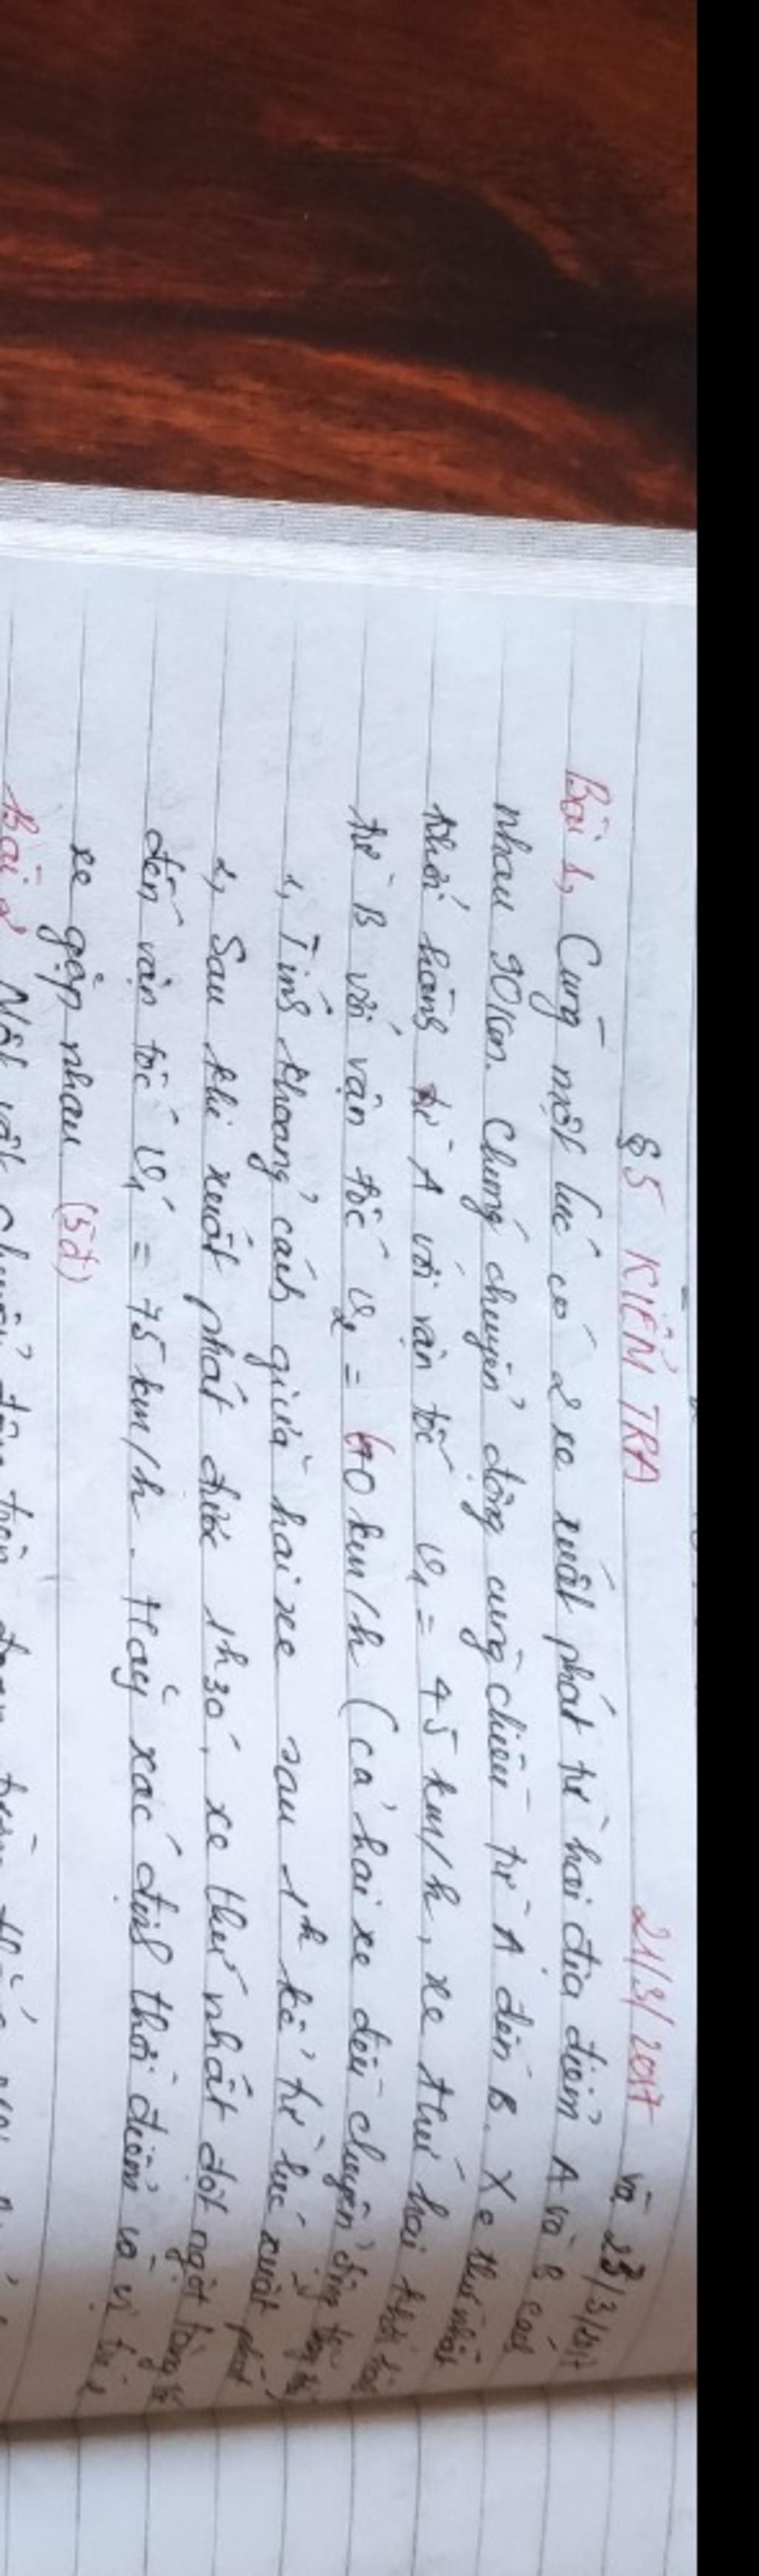 § 5 KIỂM TRA 21/3/2017 và 23/3/2017
Bài 1, Cùng một lúc có 2 xe xuất phát từ hai địa điểm A và B cách
nhau 90km. Chúng chuyển động cùng chiều từ A đến B. Xe thứ nhất
khởi hành từ A với vận tốc v₁ = 45 km/h, xe thứ hai khởi hành
từ B với vận tốc v₂ = 60 km/h (cả hai xe đều chuyển động
1, Tính khoảng cách giữa hai xe sau 1h kể từ lúc xuất phát
2, Sau khi xuất phát được 1h30', xe thứ nhất đột ngột tăng tốc
đến vận tốc v₁' = 75 km/h. Hãy xác định thời điểm và vị trí 2
xe gặp nhau (5đ)
Bài 2 Một vật chuyển động trên đoạn